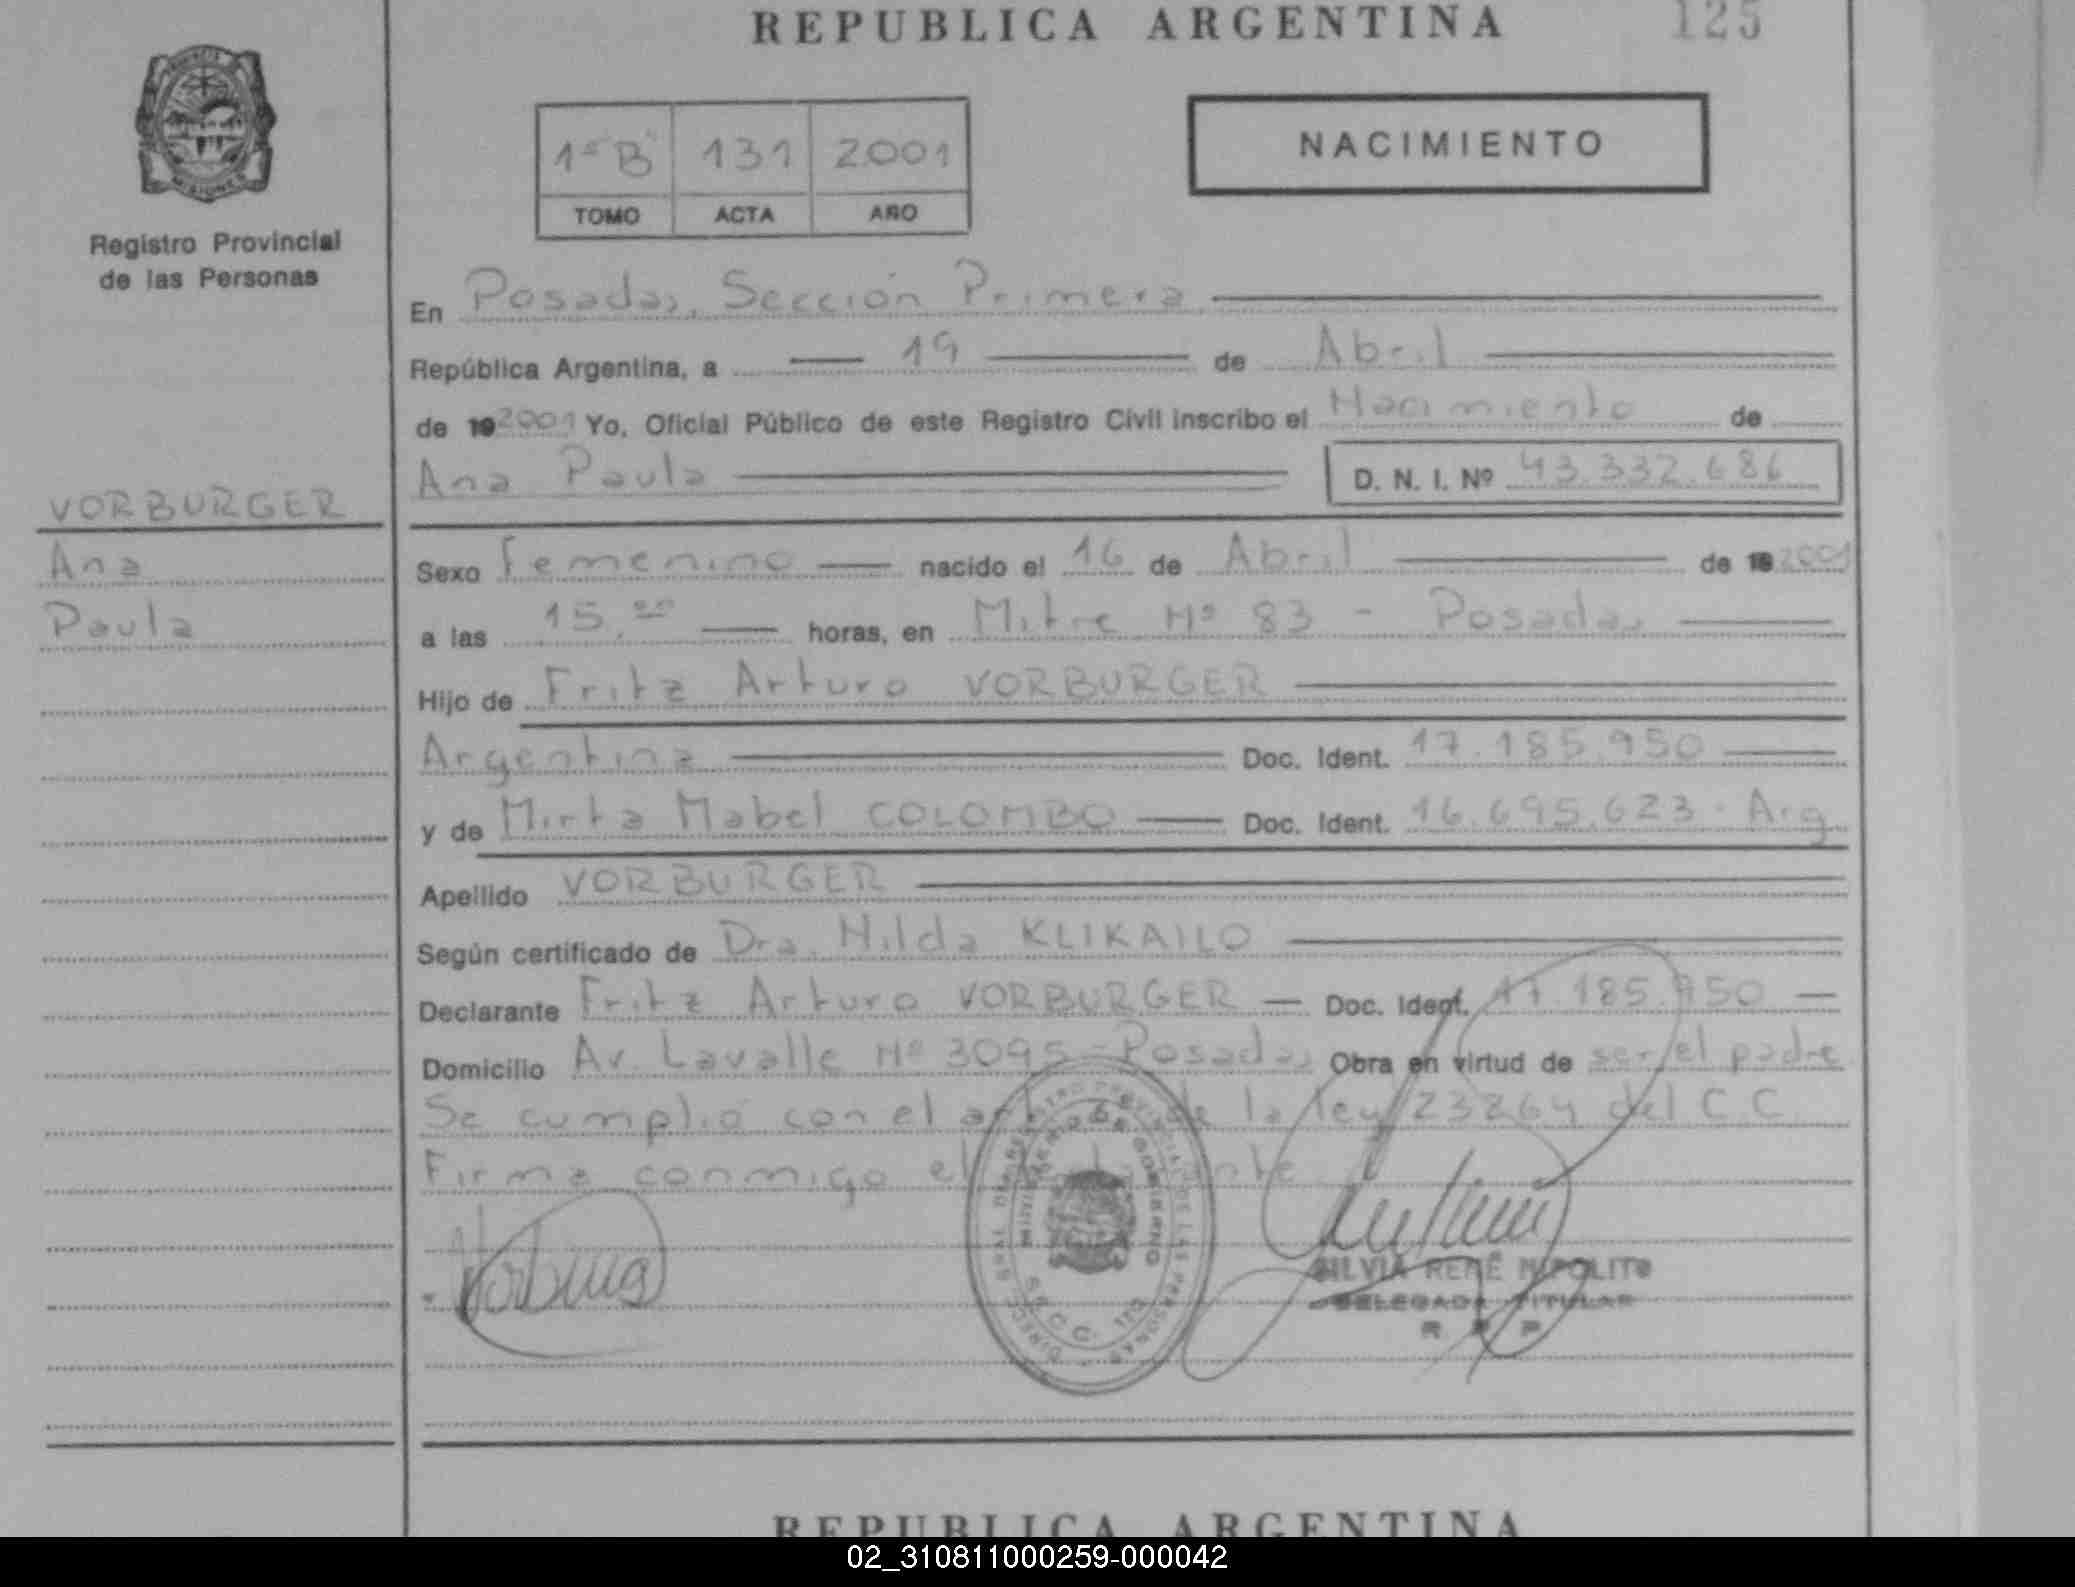 REPUBLICA ARGENTINA
125
1º "B" 131 2001
TOMO ACTA AÑO
NACIMIENTO
Registro Provincial
de las Personas
En Posadas, Sección Primera
República Argentina, a 19 de Abril
de 19 2001 Yo, Oficial Público de este Registro Civil inscribo el Nacimiento de
Ana Paula D. N. I. Nº 43.332.686
VORBURGER
Ana
Paula
Sexo Femenino nacido el 16 de Abril de 19 2001
a las 15,00 horas, en Mitre Nº 83 - Posadas
Hijo de Fritz Arturo VORBURGER
Argentina Doc. Ident. 17.185.950
y de Mirta Mabel COLOMBO Doc. Ident. 16.695.623 - Arg
Apellido VORBURGER
Según certificado de Dra. Hilda KLIKAILO
Declarante Fritz Arturo VORBURGER Doc. Ident. 17.185.950
Domicilio Av. Lavalle Nº 3095 - Posadas Obra en virtud de ser el padre
Se cumplió con el de la ley 23264 del C.C.
Firma conmigo el
MINISTERIO DE GOBIERNO
SILVIA RENÉ HIPOLITO
DELEGADA TITULAR
R P P
REPUBLICA ARGENTINA
02_310811000259-000042